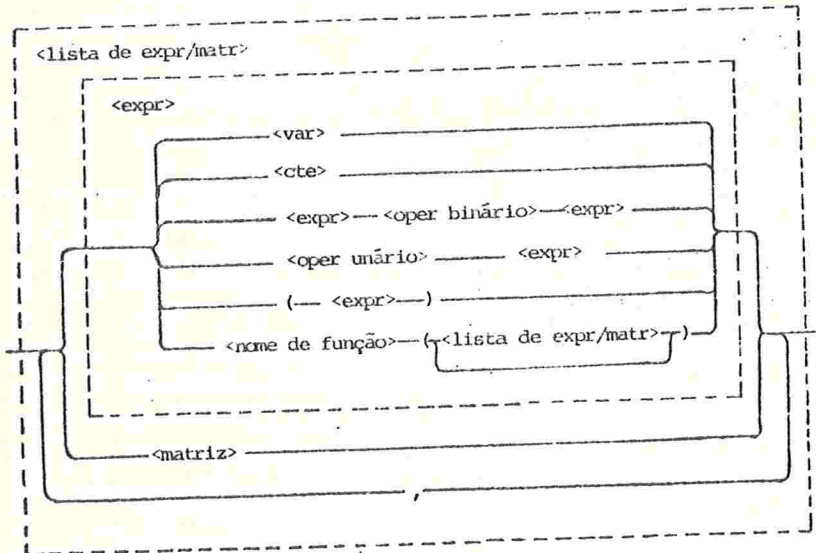 <lista de expr/matr>
<expr>
<var>
<cte>
<expr> <oper binário> <expr>
<oper unário> <expr>
( <expr> )
<nome de função> ( <lista de expr/matr> )
<matriz>
,